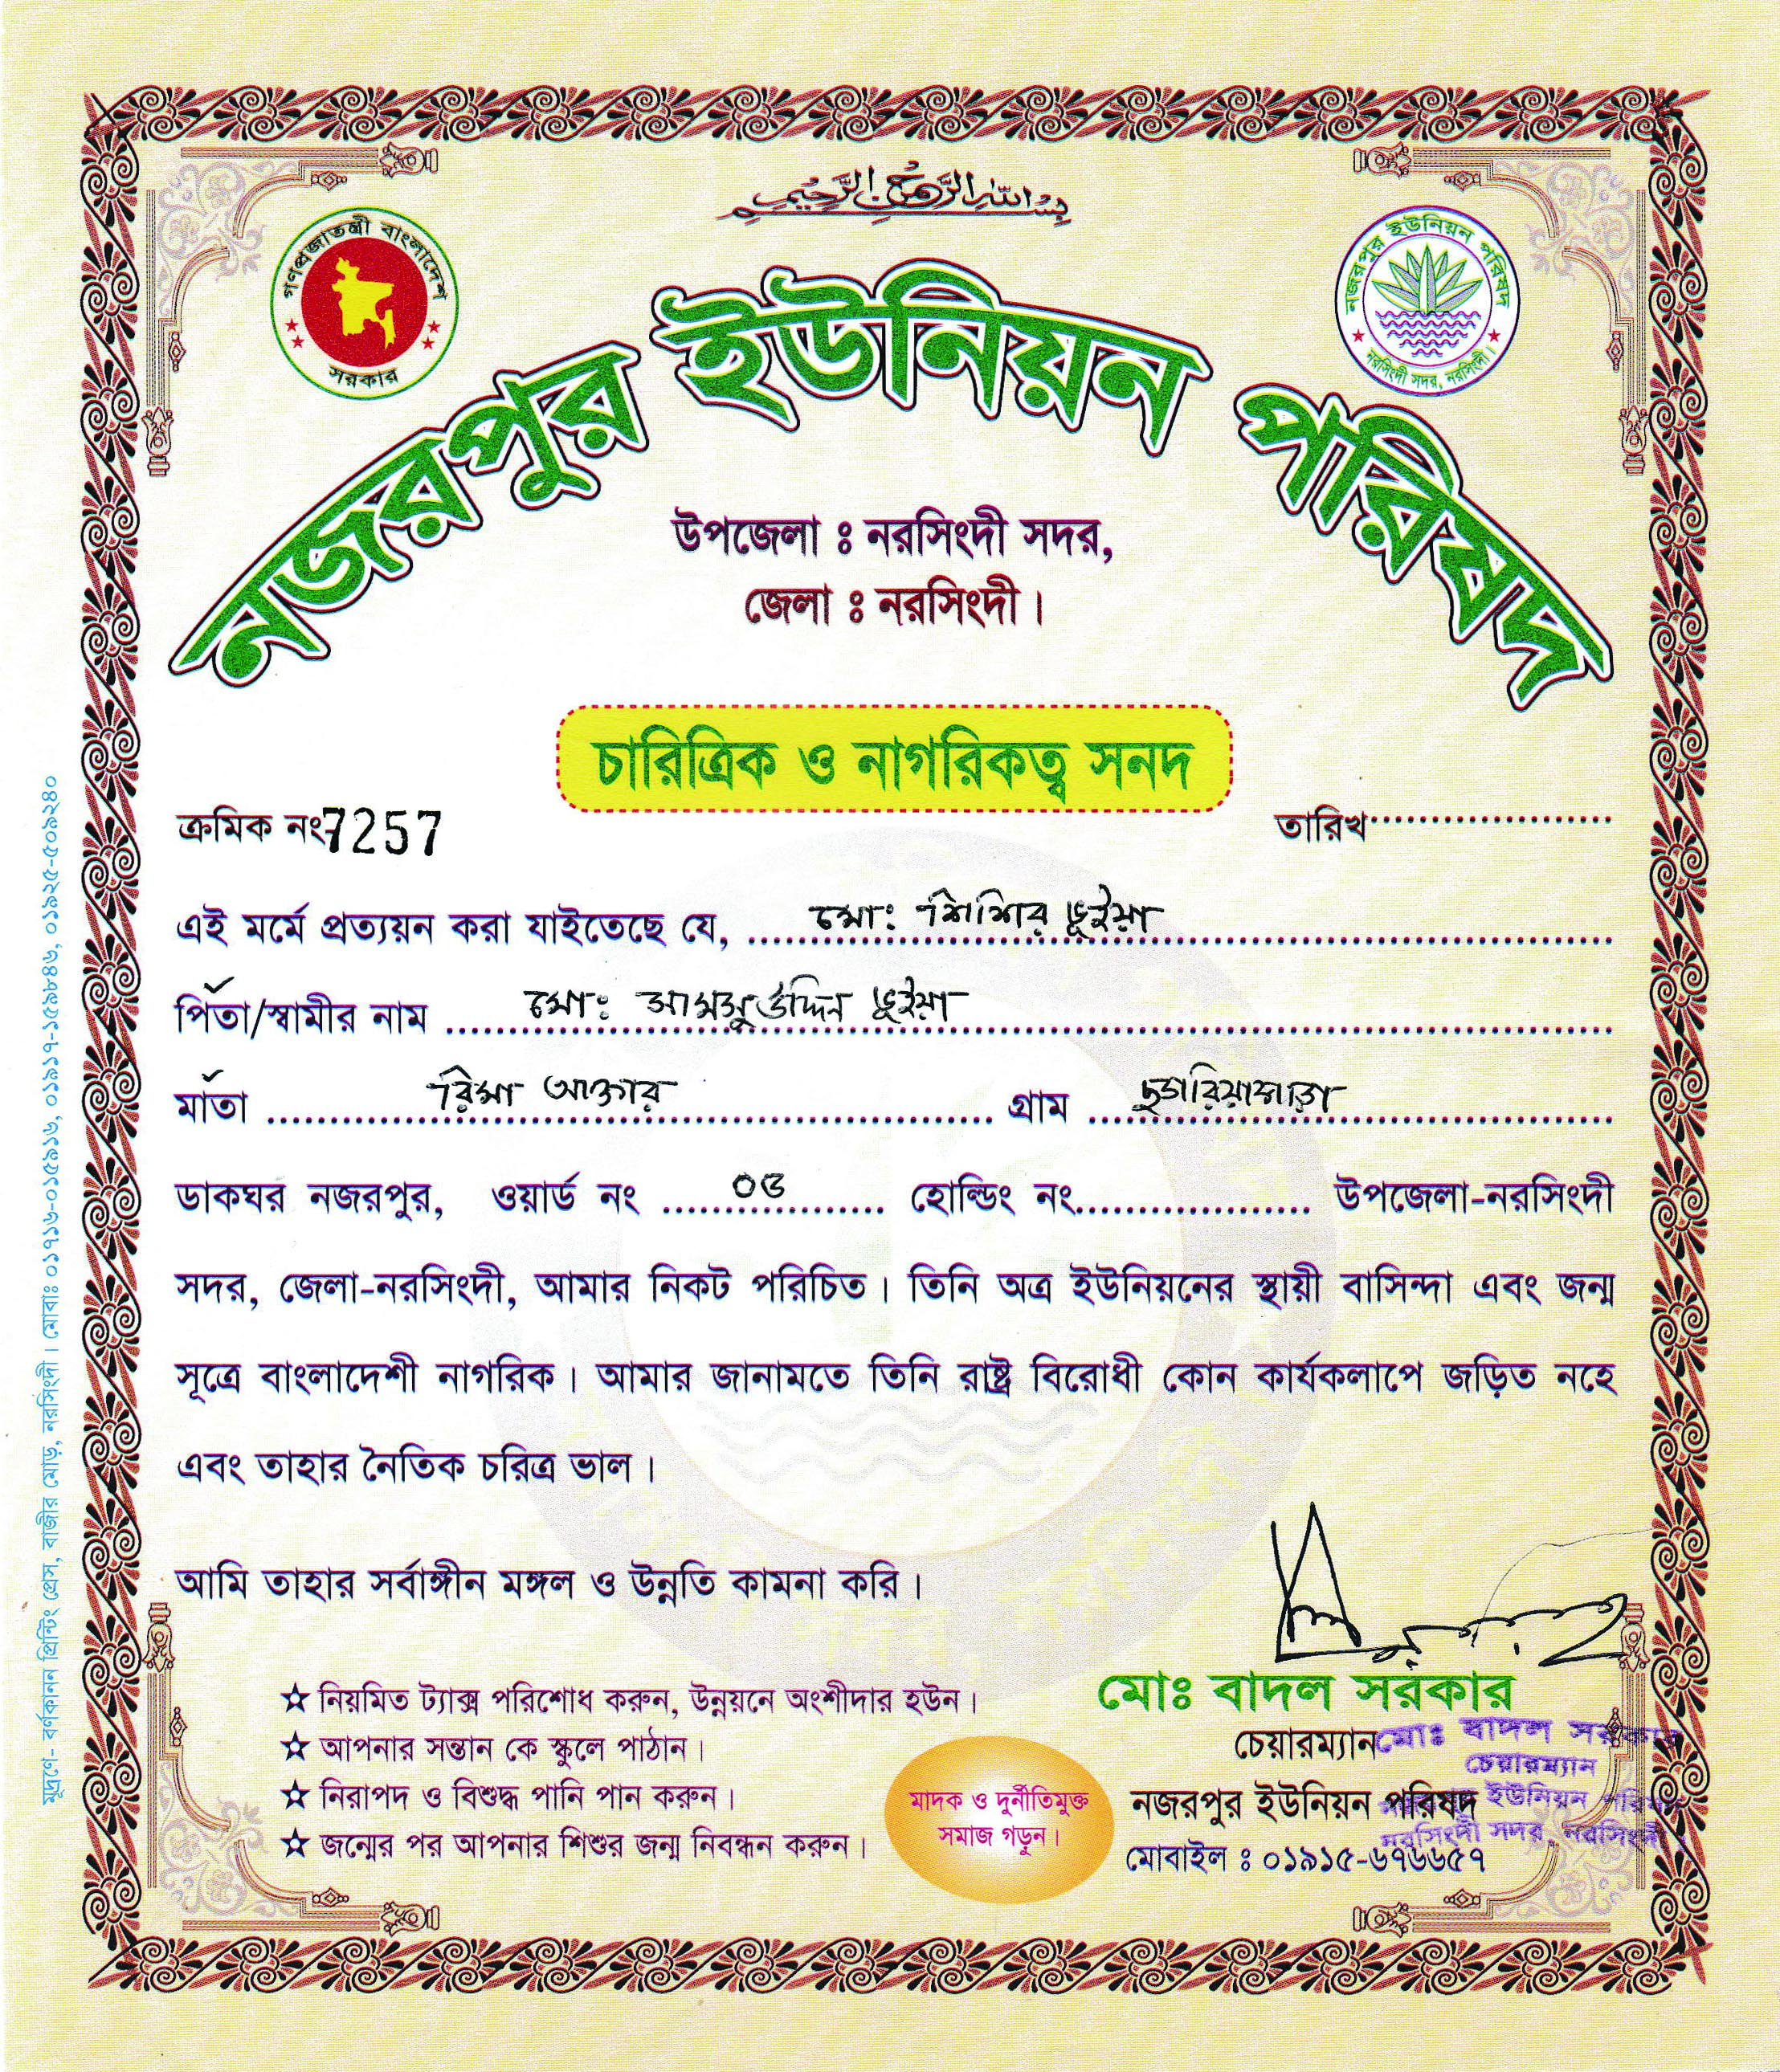 بسم الله الرحمن الرحيم
গণপ্রজাতন্ত্রী বাংলাদেশ
সরকার
নজরপুর ইউনিয়ন পরিষদ
নরসিংদী সদর, নরসিংদী।
নজরপুর ইউনিয়ন পরিষদ
উপজেলা ঃ নরসিংদী সদর,
জেলা ঃ নরসিংদী।
চারিত্রিক ও নাগরিকত্ব সনদ
ক্রমিক নং 7257 তারিখ
এই মর্মে প্রত্যয়ন করা যাইতেছে যে, মোঃ শিশির ভূইয়া
পিতা/স্বামীর নাম মোঃ সামসুউদ্দিন ভূইয়া
মাতা রিমা আক্তার গ্রাম
ডাকঘর নজরপুর, ওয়ার্ড নং ০৩ হোল্ডিং নং উপজেলা-নরসিংদী
সদর, জেলা-নরসিংদী, আমার নিকট পরিচিত। তিনি অত্র ইউনিয়নের স্থায়ী বাসিন্দা এবং জন্ম
সূত্রে বাংলাদেশী নাগরিক। আমার জানামতে তিনি রাষ্ট্র বিরোধী কোন কার্যকলাপে জড়িত নহে
এবং তাহার নৈতিক চরিত্র ভাল।
আমি তাহার সর্বাঙ্গীন মঙ্গল ও উন্নতি কামনা করি।
☆ নিয়মিত ট্যাক্স পরিশোধ করুন, উন্নয়নে অংশীদার হউন।
☆ আপনার সন্তান কে স্কুলে পাঠান।
☆ নিরাপদ ও বিশুদ্ধ পানি পান করুন।
☆ জন্মের পর আপনার শিশুর জন্ম নিবন্ধন করুন।
মাদক ও দুর্নীতিমুক্ত
সমাজ গড়ুন।
মোঃ বাদল সরকার
চেয়ারম্যান
নজরপুর ইউনিয়ন পরিষদ
মোবাইল ঃ ০১৯১৫-৬৭৬৬৫৭
মোঃ বাদল সরকার
চেয়ারম্যান
ইউনিয়ন পরিষদ
নরসিংদী সদর, নরসিংদী।
মুদ্রণে- বর্ণকানন প্রিন্টিং প্রেস, বাজীর মোড়, নরসিংদী। মোবাঃ ০১৭১৬-০১৫৯১৬, ০১৯১৭-১৫৯৮৪৬, ০১৯২৫-৫০৯২৪০